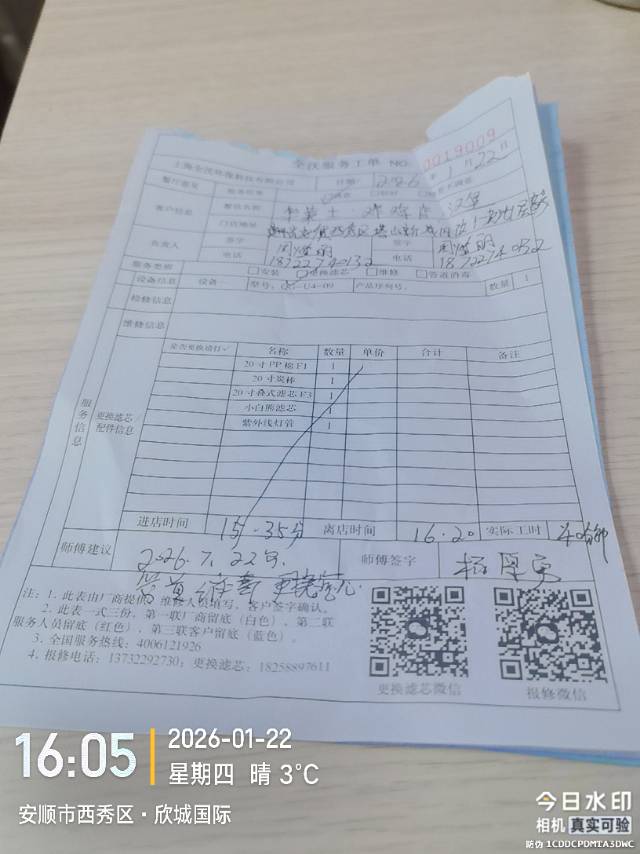 全沃服务工单 NO. 0019009
上海全沃环保科技有限公司 日期: 2026年1月22日
餐厅意见 服务评价
客户信息 餐店名称
门店地址
负责人 签字 签字
电话 电话
服务类型 安装 更换滤芯 维修 管道消毒
设备信息 设备一 型号: 产品序列号: 数量 1
检修信息
维修信息
服务信息 更换滤芯/配件信息
是否更换请打✓ 名称 数量 单价 合计 备注
20寸PP棉F1 1
20寸炭棒 1
20寸叠式滤芯F3 1
小白熊滤芯 1
紫外线灯管 1
进店时间 15.35分 离店时间 16.20 实际工时
师傅建议 2026.7.22 师傅签字
注: 1. 此表由厂商提供, 维修人员填写, 客户签字确认。
2. 此表一式三份, 第一联厂商留底(白色)、第二联
服务人员留底(红色)、第三联客户留底(蓝色)。
3. 全国服务热线: 4006121926
4. 报修电话: 13732292730; 更换滤芯: 18258897611
更换滤芯微信 报修微信
16:05 2026-01-22
星期四 晴 3℃
安顺市西秀区·欣城国际
今日水印
相机 真实可验
防伪 1CDDCPDMTA3DWC